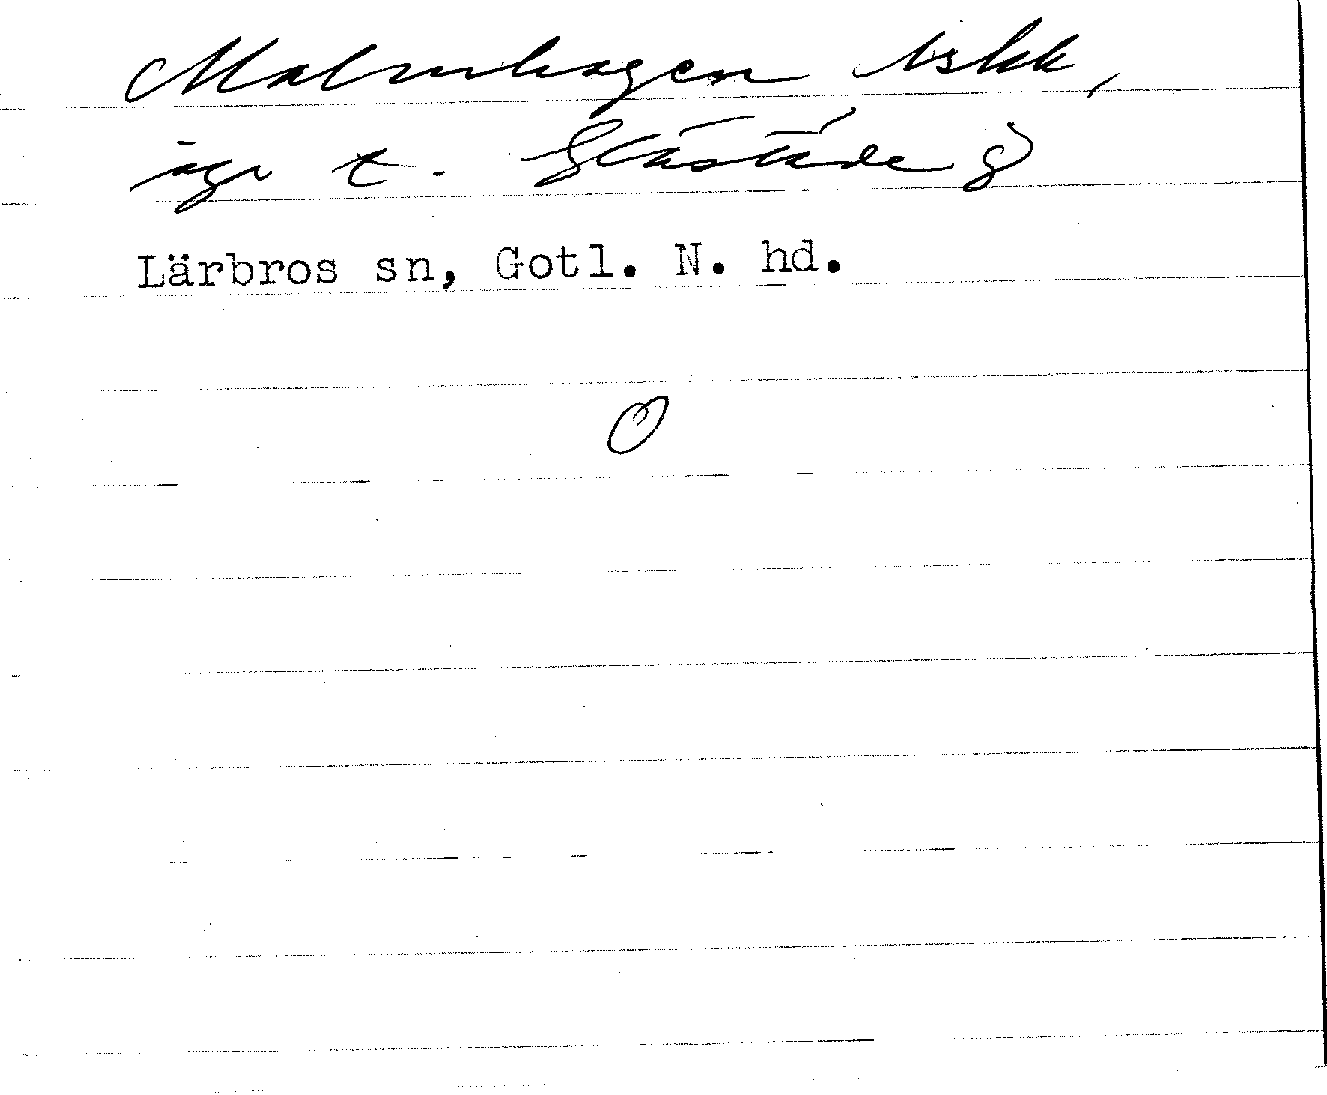 Malmhagen, 
ägr t. Glästäde g
Lärbros sn, Gotl. N. hd.
O